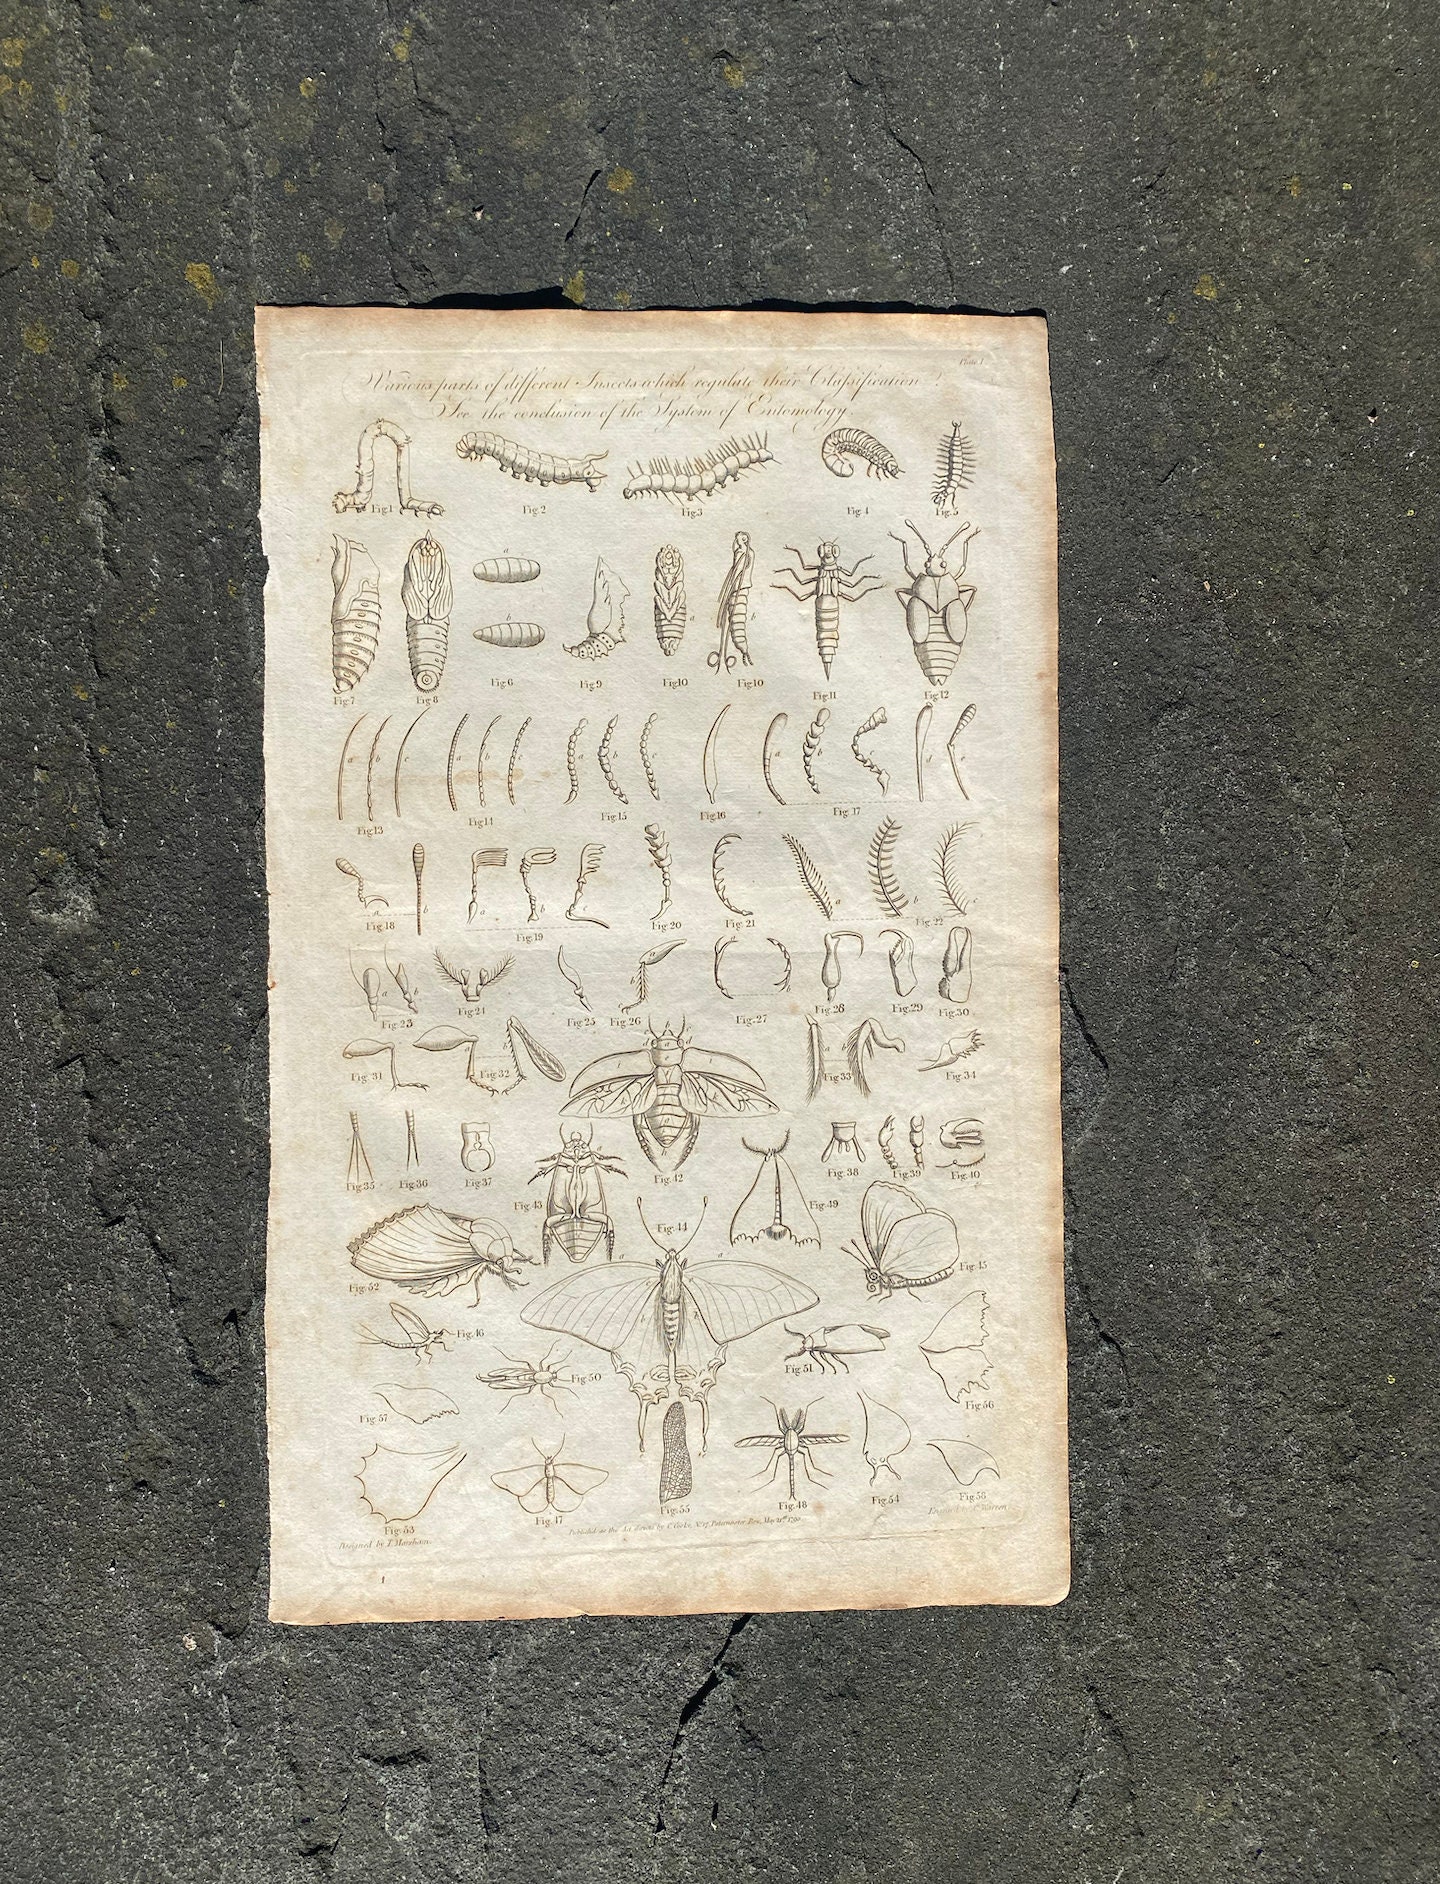 Plate I
Various parts of different Insects which regulate their Classification.
See the conclusion of the System of Entomology.
Fig.1 Fig.2 Fig.3 Fig.4 Fig.5
a
b
a b
Fig.7 Fig.8 Fig.6 Fig.9 Fig.10 Fig.10 Fig.11 Fig.12
a b c a b c a b c a b c d e
Fig.13 Fig.14 Fig.15 Fig.16 Fig.17
a b a b c a b c
Fig.18 Fig.19 Fig.20 Fig.21 Fig.22
a b b a
Fig.23 Fig.24 Fig.25 Fig.26 Fig.27 Fig.28 Fig.29 Fig.30
b a b
Fig.31 Fig.32 Fig.33 Fig.34
Fig.35 Fig.36 Fig.37 Fig.42 Fig.38 Fig.39 Fig.40
Fig.43 Fig.44 Fig.49
a a
Fig.52 Fig.45
b b
Fig.46 Fig.51
Fig.50
Fig.57 Fig.56
Fig.53 Fig.47 Fig.55 Fig.48 Fig.54 Fig.58
Designed by T. Marsham.
Published as the Act directs by C. Cooke, No. 17, Paternoster Row, May 21st 1790
Engraved by Warren
1